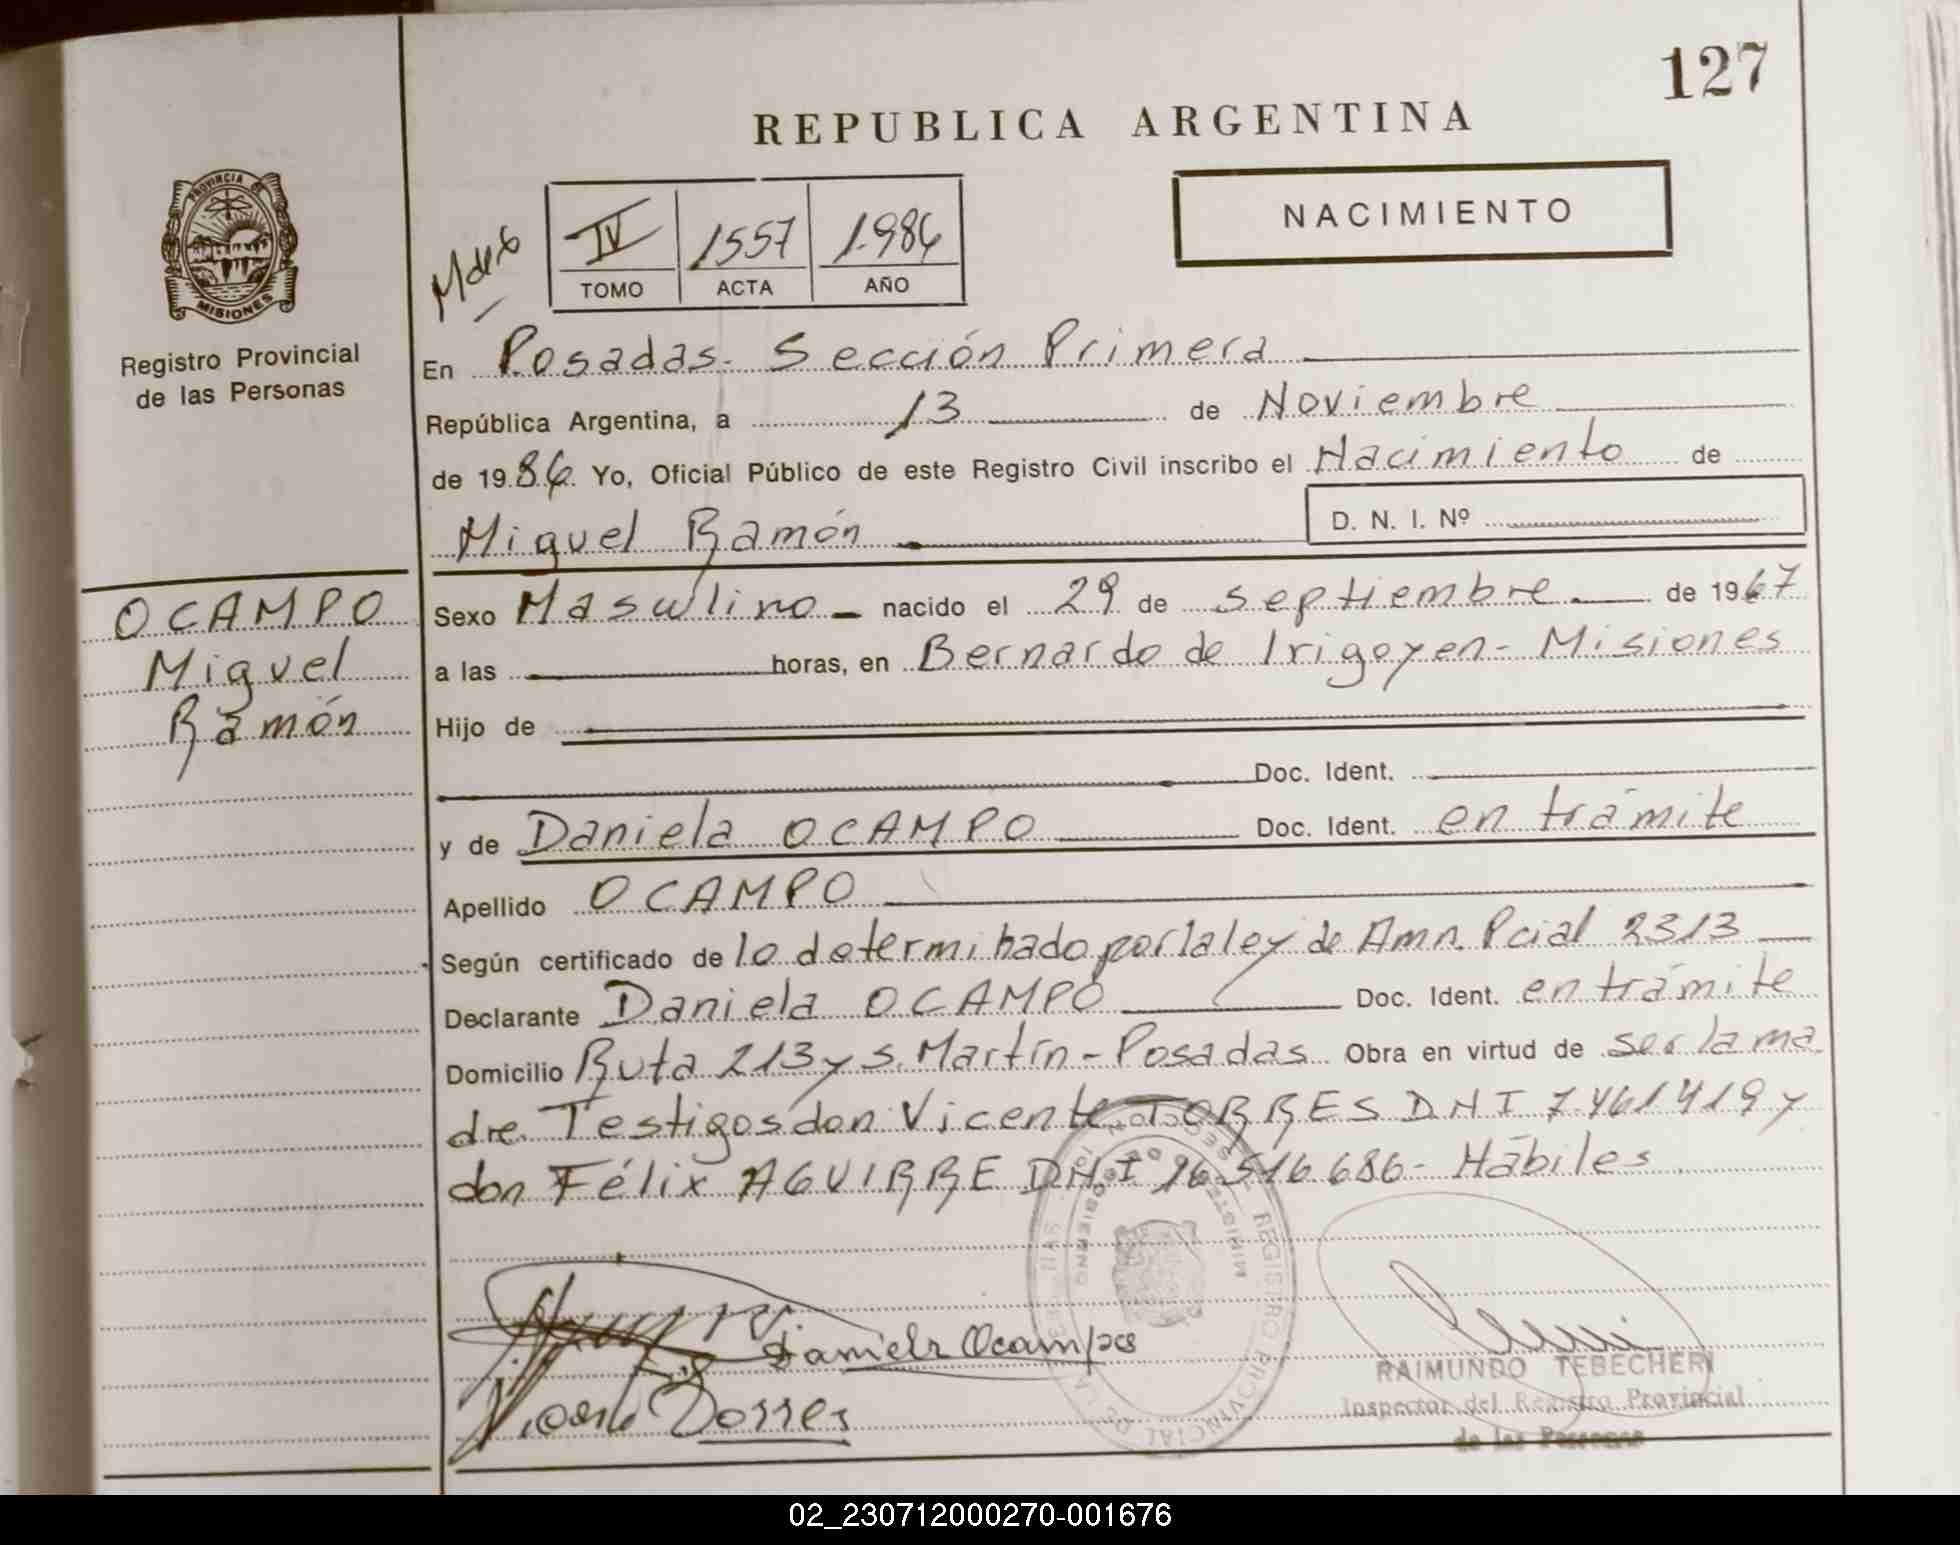 127
REPUBLICA ARGENTINA
NACIMIENTO
PROVINCIA DE
MISIONES
Registro Provincial
de las Personas
IV 1557 1.986
TOMO ACTA AÑO
En Posadas- Sección Primera
República Argentina, a 13 de Noviembre
de 1986 Yo, Oficial Público de este Registro Civil inscribo el Nacimiento de
Miguel Ramón D. N. I. Nº
OCAMPO
Miguel
Ramón
Sexo Masculino nacido el 29 de septiembre de 1967
a las horas, en Bernardo de Irigoyen- Misiones
Hijo de
Doc. Ident.
y de Daniela OCAMPO Doc. Ident. en trámite
Apellido OCAMPO
Según certificado de lo determinado por la ley de Amn. Pcial 2313
Declarante Daniela OCAMPO Doc. Ident. en trámite
Domicilio Ruta 213 y S. Martín - Posadas Obra en virtud de ser la ma
dre. Testigos don Vicente TORRES DNI 7.461419 y
don Félix AGUIRRE DNI 16.516.686- Hábiles
Daniela Ocampos
Torres
RAIMUNDO TEBECHERI
Inspector del Registro Provincial
de las Personas
02_230712000270-001676